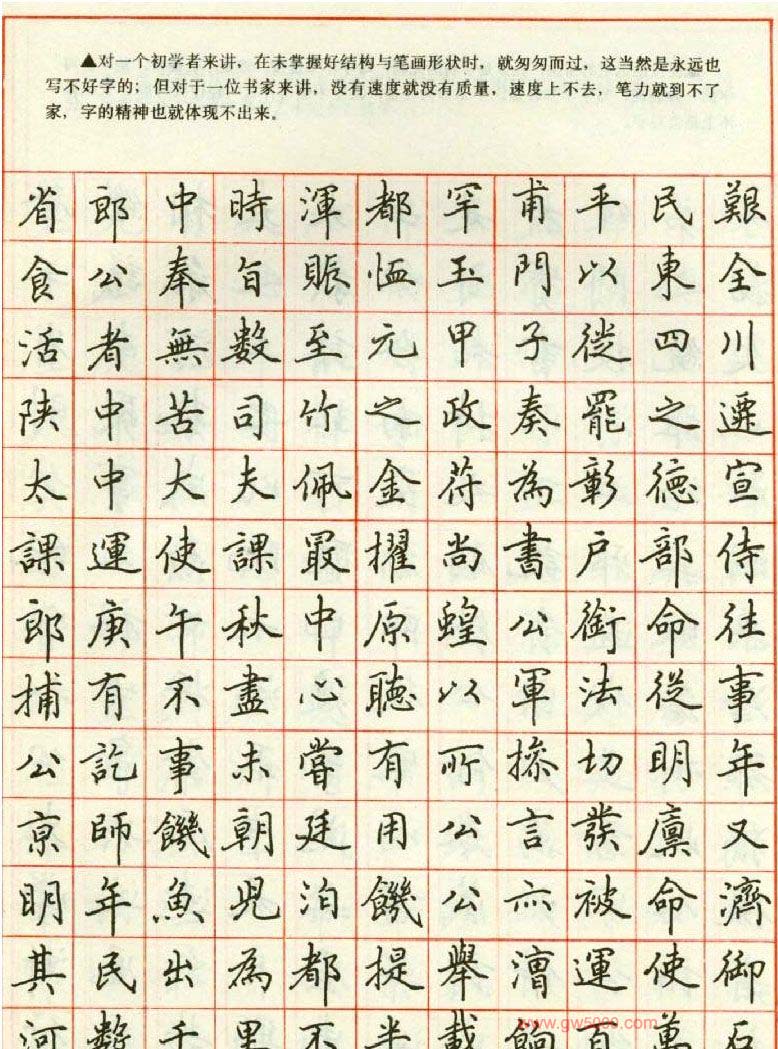 ▲对一个初学者来讲，在未掌握好结构与笔画形状时，就匆匆而过，这当然是永远也
写不好字的；但对于一位书家来讲，没有速度就没有质量，速度上不去，笔力就到不了
家，字的精神也就体现不出来。
省郎中時渾都罕甫平民艱
食公奉旨賑恤玉門以東全
活者無數至元甲子從四川
陝中苦司竹之政奏罷之遷
太中大夫佩金符為彰德宣
課運使課最擢尚書户部侍
郎庚午秋中原蝗公銜命往
捕有不盡心聽以軍法從事
公訖事未嘗有所摻切明年
京師饑朝廷用公言發廪又
明年魚兒泊饑公亦被命濟
其民出為都提舉漕運使御
河數千里不半載餉百萬石
www.gw5000.com